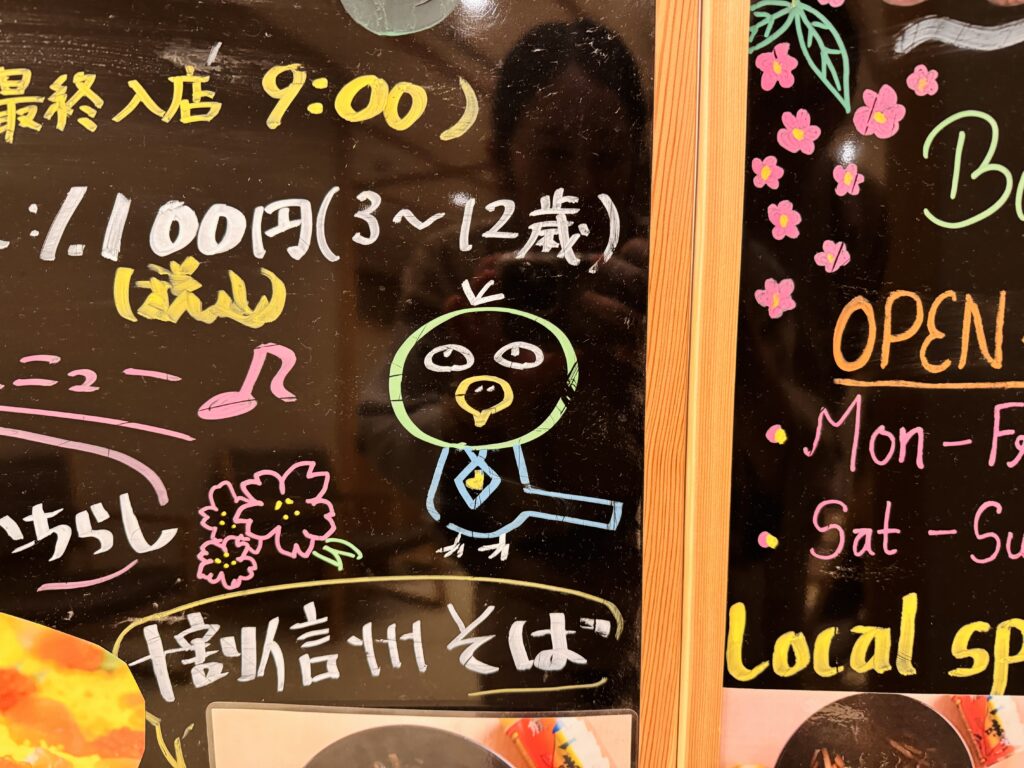 最終入店 9:00)
:1.100円(3～12歳)
ニュー
ちらし
十割信州そば
OPEN
Mon-
Sat-Su
Local sp